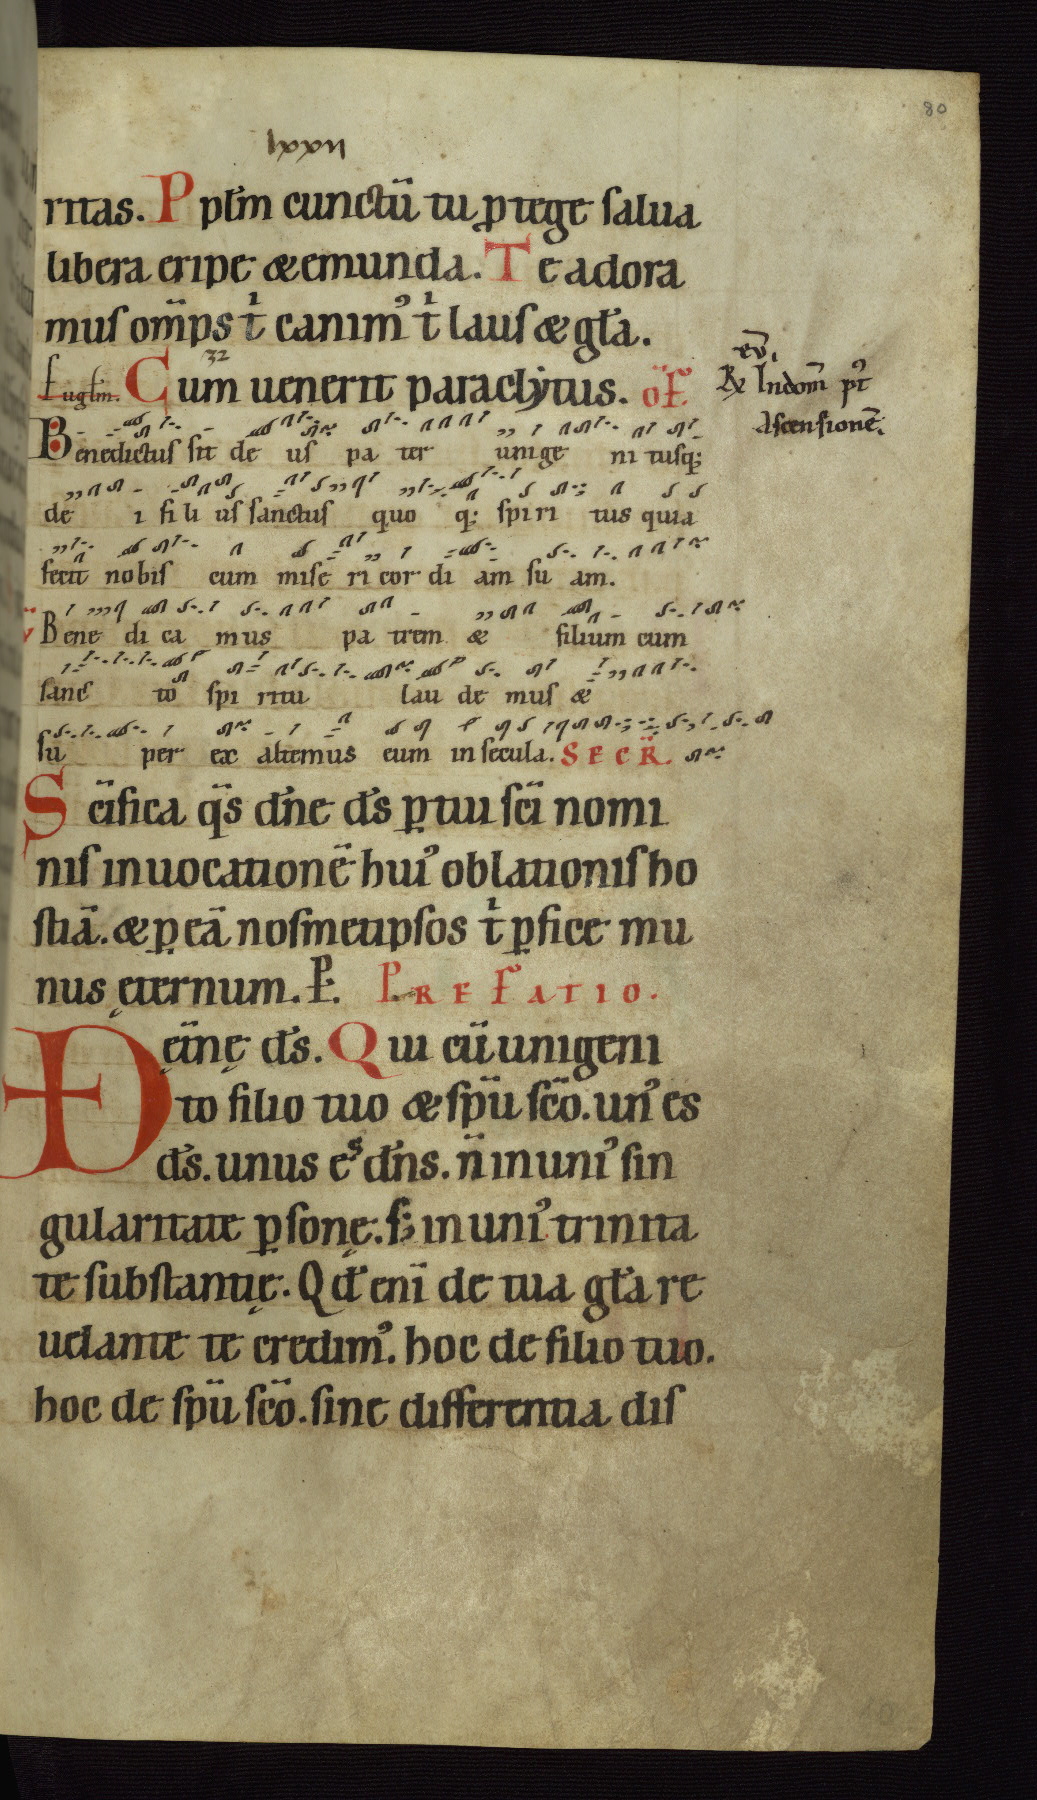 80
lxxii
ritas. P pl̄m cunctū tu ꝓtege ſalua
libera eripe & emunda. T e adora
muſ om̄ps t̄ canim᾽ t̄ lauſ & gl̄a.
Euglm̄. C um uenerit paraclẏtus. of̄.
32
eū.
R Indom̄ p᾽t
Aſcenſionē.
Benedictuſ ſit de uſ pa ter unige ni tuſq;
de i fi li uſ ſanctuſ quo q; ſpi ri tus quia
fecit nobiſ cum miſe ri cor di am ſu am.
v̄ Bene di ca mus pa trem & filium cum
ſanc to ſpi ritu lau de muſ &
ſu per ex altemus eum in ſecula. S E C R̄.
S c̄ifica q̄s dn̄e ds̄ ꝑ tui ſcī nomi
niſ inuocationē hui᾽ oblationiſ ho
ſtiā. & ꝑ eā noſmetipſos t̄ ꝑfice mu
nus ęternum. P. P R E F A T I O .
D ęīnę ds̄. Q ui cū unigeni
to filio tuo & ſpū ſcō. un᾽ es
ds̄. unus es dn̄s. n̄ in uni᾽ ſin
gularitate ꝑſonę. ſ; in uni᾽ trinita
te ſubſtantię. Qd̄ enī de tua gl̄a re
uelante te credim᾽. hoc de filio tuo.
hoc de ſpū ſcō. ſine differentia diſ